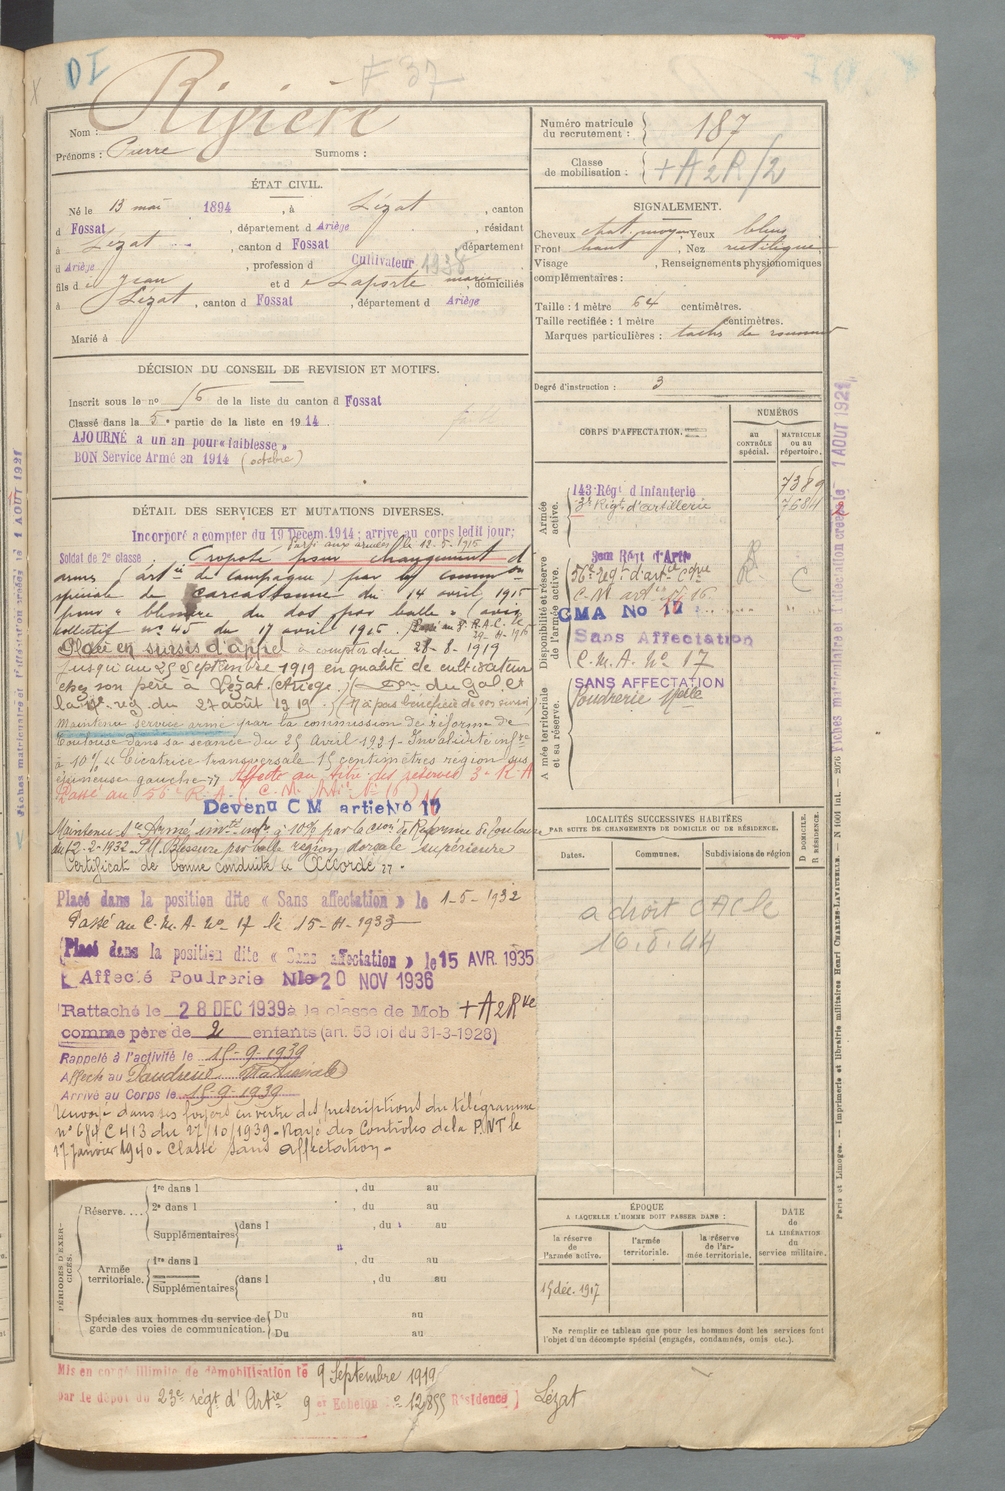 DI
F 37
Nom : Rivière
Prénoms : Pierre Surnoms :
Numéro matricule du recrutement : 187
Classe de mobilisation : +A 2R/2
ÉTAT CIVIL.
Né le 13 mai 1894, à Lézat, canton
d Fossat, département d Ariège, résidant
à Lézat, canton d Fossat département
d Ariège, profession d Cultivateur 1938
fils de Jean et de Laporte marie, domiciliés
à Lézat, canton d Fossat, département d Ariège
Marié à
SIGNALEMENT.
Cheveux chat. moyen Yeux bleus
Front haut, Nez rectiligne
Visage , Renseignements physionomiques
complémentaires :
Taille : 1 mètre 64 centimètres.
Taille rectifiée : 1 mètre centimètres.
Marques particulières : tachs de
Degré d'instruction : 3
DÉCISION DU CONSEIL DE REVISION ET MOTIFS.
Inscrit sous le no de la liste du canton d Fossat
Classé dans la 5e partie de la liste en 1914
AJOURNÉ à un an pour « faiblesse »
BON Service Armé en 1914 (octobre)
DÉTAIL DES SERVICES ET MUTATIONS DIVERSES.
Incorporé a compter du 19 Décem. 1914 ; arrivé au corps ledit jour;
Parti aux armées le 12-5-1915
Soldat de 2e classe. Proposé pour changement d
arme (artie de campagne) par la common
spéciale de Carcassonne du 14 avril 1915
pour « blessure du dos par balle » (avis
collectif no 45 du 17 avril 1915
Placé en sursis d'appel à compter du 28-8-1919
jusqu'au 25 septembre 1919 en qualité de cultivateur
chez son père à Lézat (Ariège) du Gal Ct
la rég. du 27 août 1919. (N'a pas bénéficié de son sursis)
Maintenu service armé par la commission de réforme de
Toulouse dans sa séance du 25 Avril 1921 - Invalidité infre
à 10% « Cicatrice transversale 15 centimètres region sus
épineuse gauche » Affecté au titre des réserves 3e R A
Passé au 56e R.A. (C.M. Artie No 16)
Devenu C M artie No 17
Maintenu Sce Armé invté infre à 10% par la Cion de Réforme de Toulouse
du 12-2-1932. Blessure par balle region dorsale supérieure
Certificat de bonne conduite « Accordé ».
Placé dans la position dite « Sans affectation » le 1-5-1932
Passé au C.M.A. No 17 le 15-4-1933
Placé dans la position dite « Sans affectation » le 15 AVR. 1935
Affecté Poudrerie Nle 20 NOV 1936
Rattaché le 28 DEC 1939 à la classe de Mob +A2Rve
comme père de 2 enfants (art. 58 loi du 31-3-1928)
Rappelé à l'activité le 15-9-1939
Affecté au Poudrerie Nationale
Arrivé au Corps le 15-9-1939
Renvoyé dans ses foyers en vertu des prescriptions du télégramme
no 684 C 413 du 27/10/1939 - Rayé des Contrôles de la P.NT le
17 janvier 1940 - Classé sans affectation -
CORPS D'AFFECTATION.
NUMÉROS
au CONTRÔLE spécial.
MATRICULE ou au répertoire.
Armée active.
143 Régt d Infanterie 7389
3e Régt d'artillerie
Disponibilité et réserve de l'armée active.
3eme Rért d'Artie
56e régt d'artie
C M artie No 16
CMA No 17
Sans Affectation
C.M.A. No 17
Armée territoriale et sa réserve.
SANS AFFECTATION
Poudrerie Nalle
LOCALITÉS SUCCESSIVES HABITÉES
PAR SUITE DE CHANGEMENTS DE DOMICILE OU DE RÉSIDENCE.
D DOMICILE. R RÉSIDENCE.
Dates. Communes. Subdivisions de région
a droit CAC le
16.8.44
PÉRIODES D'EXERCICES.
Réserve....
1re dans l , du au
2e dans l , du au
Supplémentaires dans l , du au
Armée territoriale.
1re dans l , du au
Supplémentaires dans l , du au
Spéciales aux hommes du service de garde des voies de communication.
Du au
Du au
ÉPOQUE
A LAQUELLE L'HOMME DOIT PASSER DANS :
la réserve de l'armée active.
l'armée territoriale.
la réserve de l'armée territoriale.
DATE de LA LIBÉRATION du service militaire.
15 déc. 1917
Ne remplir ce tableau que pour les hommes dont les services font
l'objet d'un décompte spécial (engagés, condamnés, omis etc.).
Mis en congé illimité de démobilisation le 9 Septembre 1919
par le dépôt du 23e régt d'Artie 9 et Echelon : no 12,855 Résidence ] Lézat
Fiches matriculaire et d'affectation créées le 1 AOUT 1921
Paris et Limoges. — Imprimerie et librairie militaires Henri CHARLES-LAVAUZELLE.
Fiches matriculaire et d'affectation créées le 1 AOUT 1921